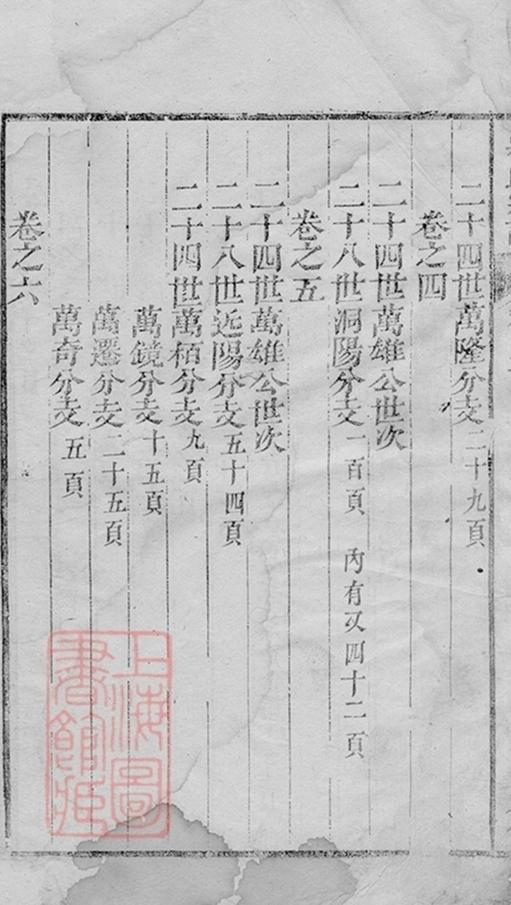 二十四世萬隆分支二十九頁
卷之四
二十四世萬雄公世次
二十八世洞陽分支一百頁 內有又四十二頁
卷之五
二十四世萬雄公世次
二十八世近陽分支五十四頁
二十四世萬栢分支九頁
萬鏡分支十五頁
萬遷分支二十五頁
萬奇分支五頁
卷之六
上海圖
書館藏